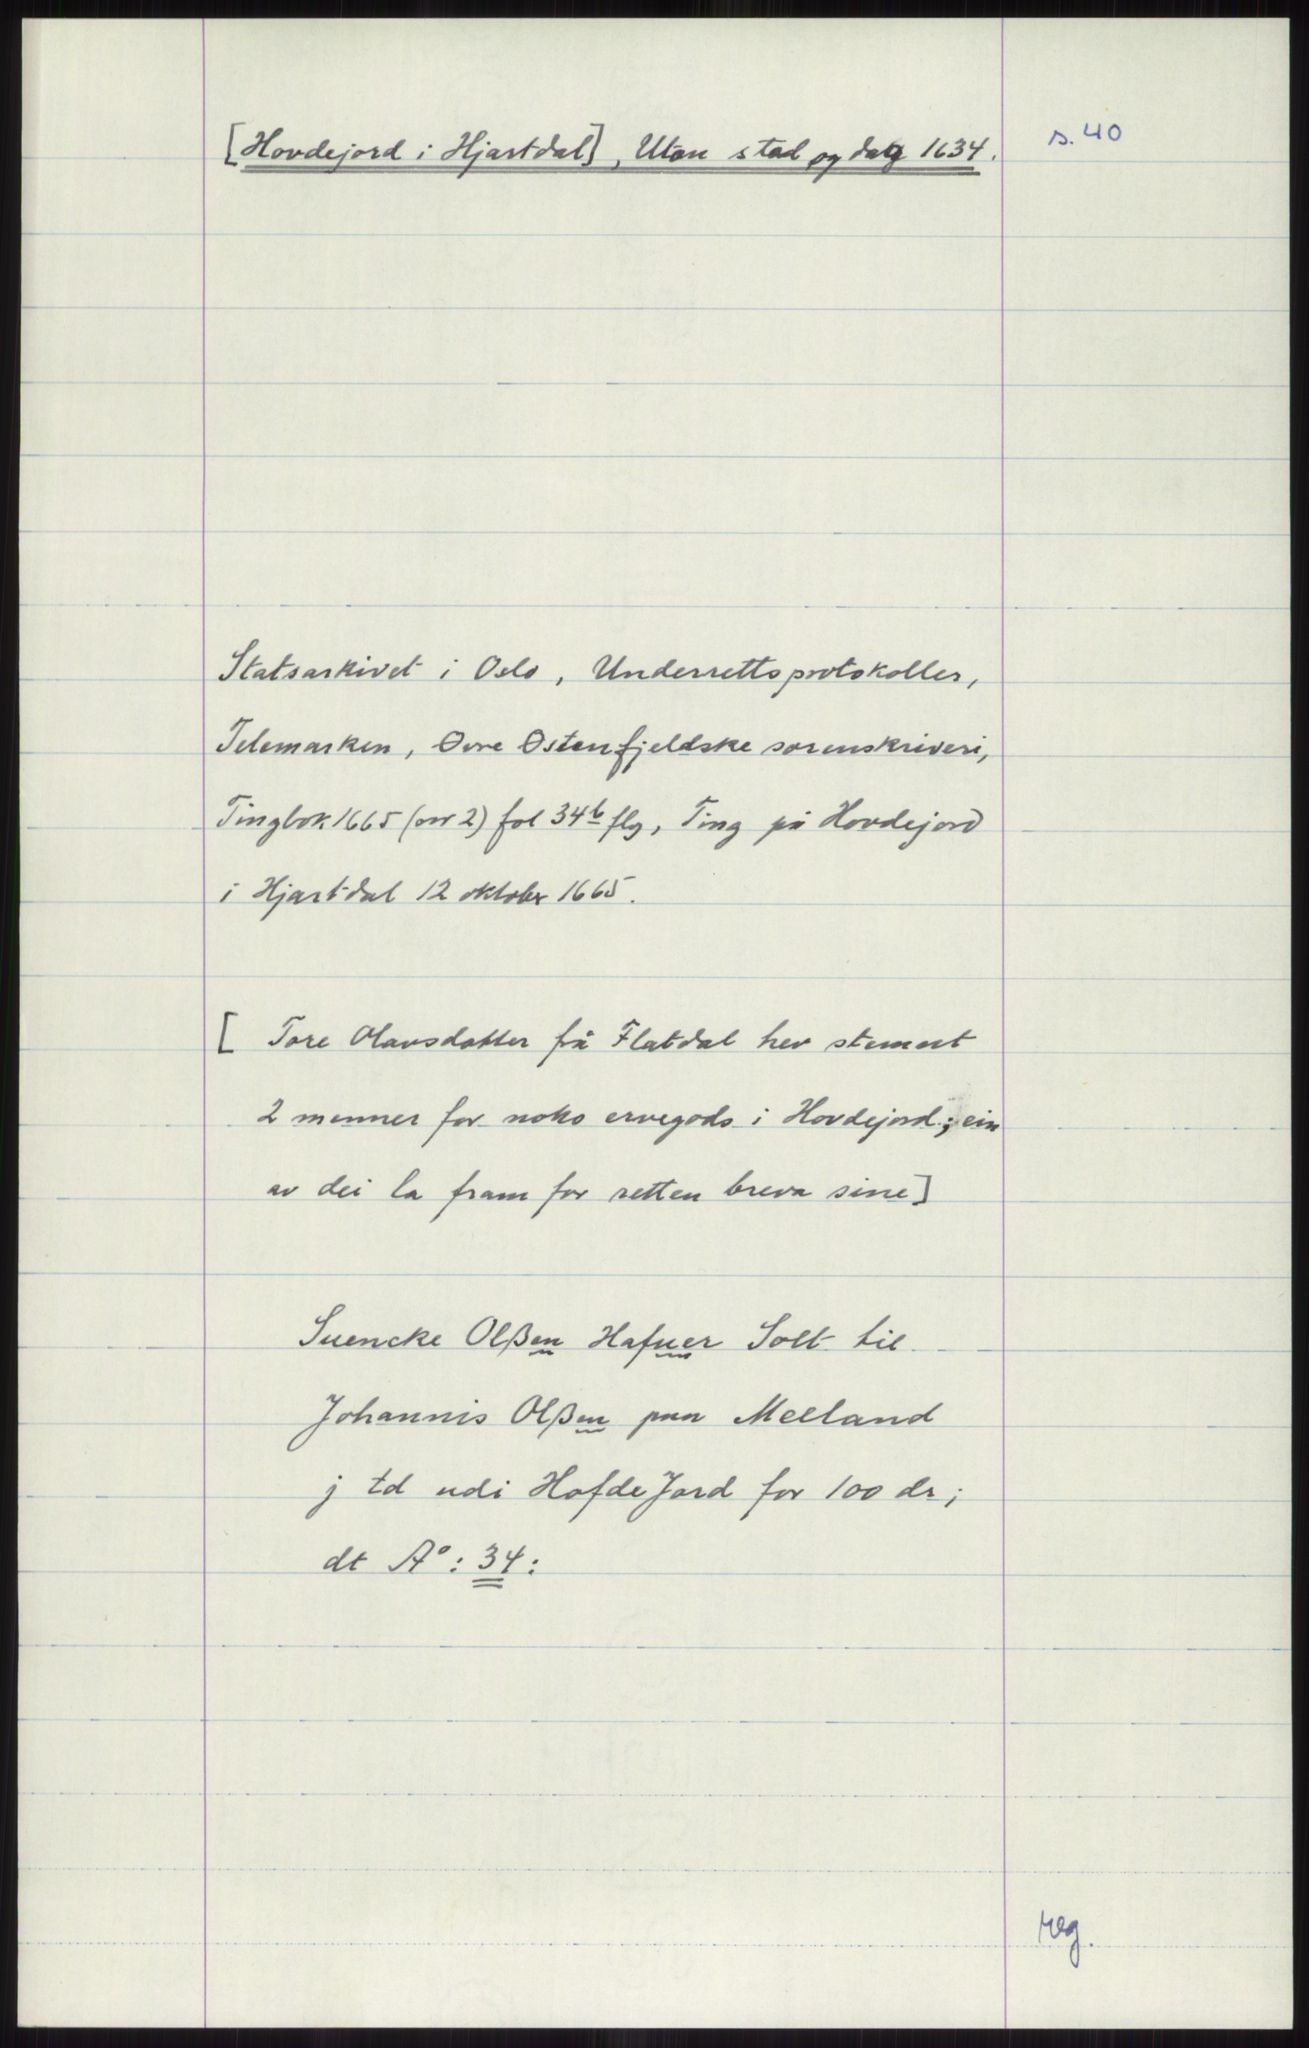 s. 40
[Hovdejord i Hjartdal], Utan stad og dag 1634.
Statsarkivet i Oslo, Underrettsprotokoller,
Telemarken, Øvre Østenfjeldske sorenskriveri,
Tingbok 1665 (nr 2) fol 34b flg, Ting på Hovdejord
i Hjartdal 12 oktober 1665.
[ Tore Olavsdotter frå Flatdal hev stemnt
2 menner for noko ervegods i Hovdejord; ein
av dei la fram for retten breva sine]
Suencke Olßen Hafuer Solt til
Johannis Olßen paa Meeland
j td udi HofdeJord for 100 dr;
dt A°: 34:
reg.